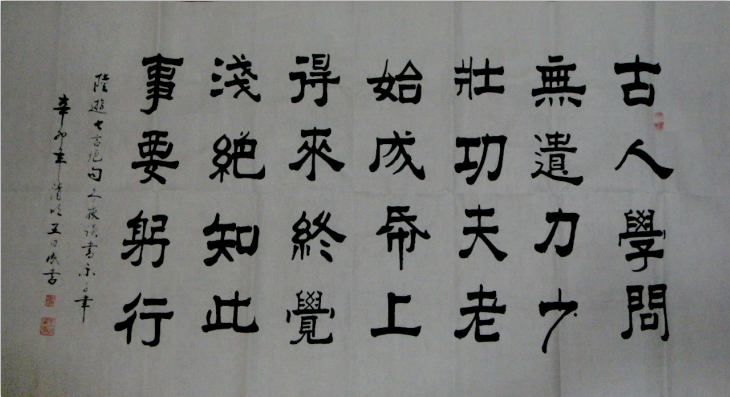 古人學問
無遺力少
壯功夫老
始成帋上
得來終覺
淺絶知此
事要躬行
陸遊七言絕句冬夜读書示子聿
辛卯年